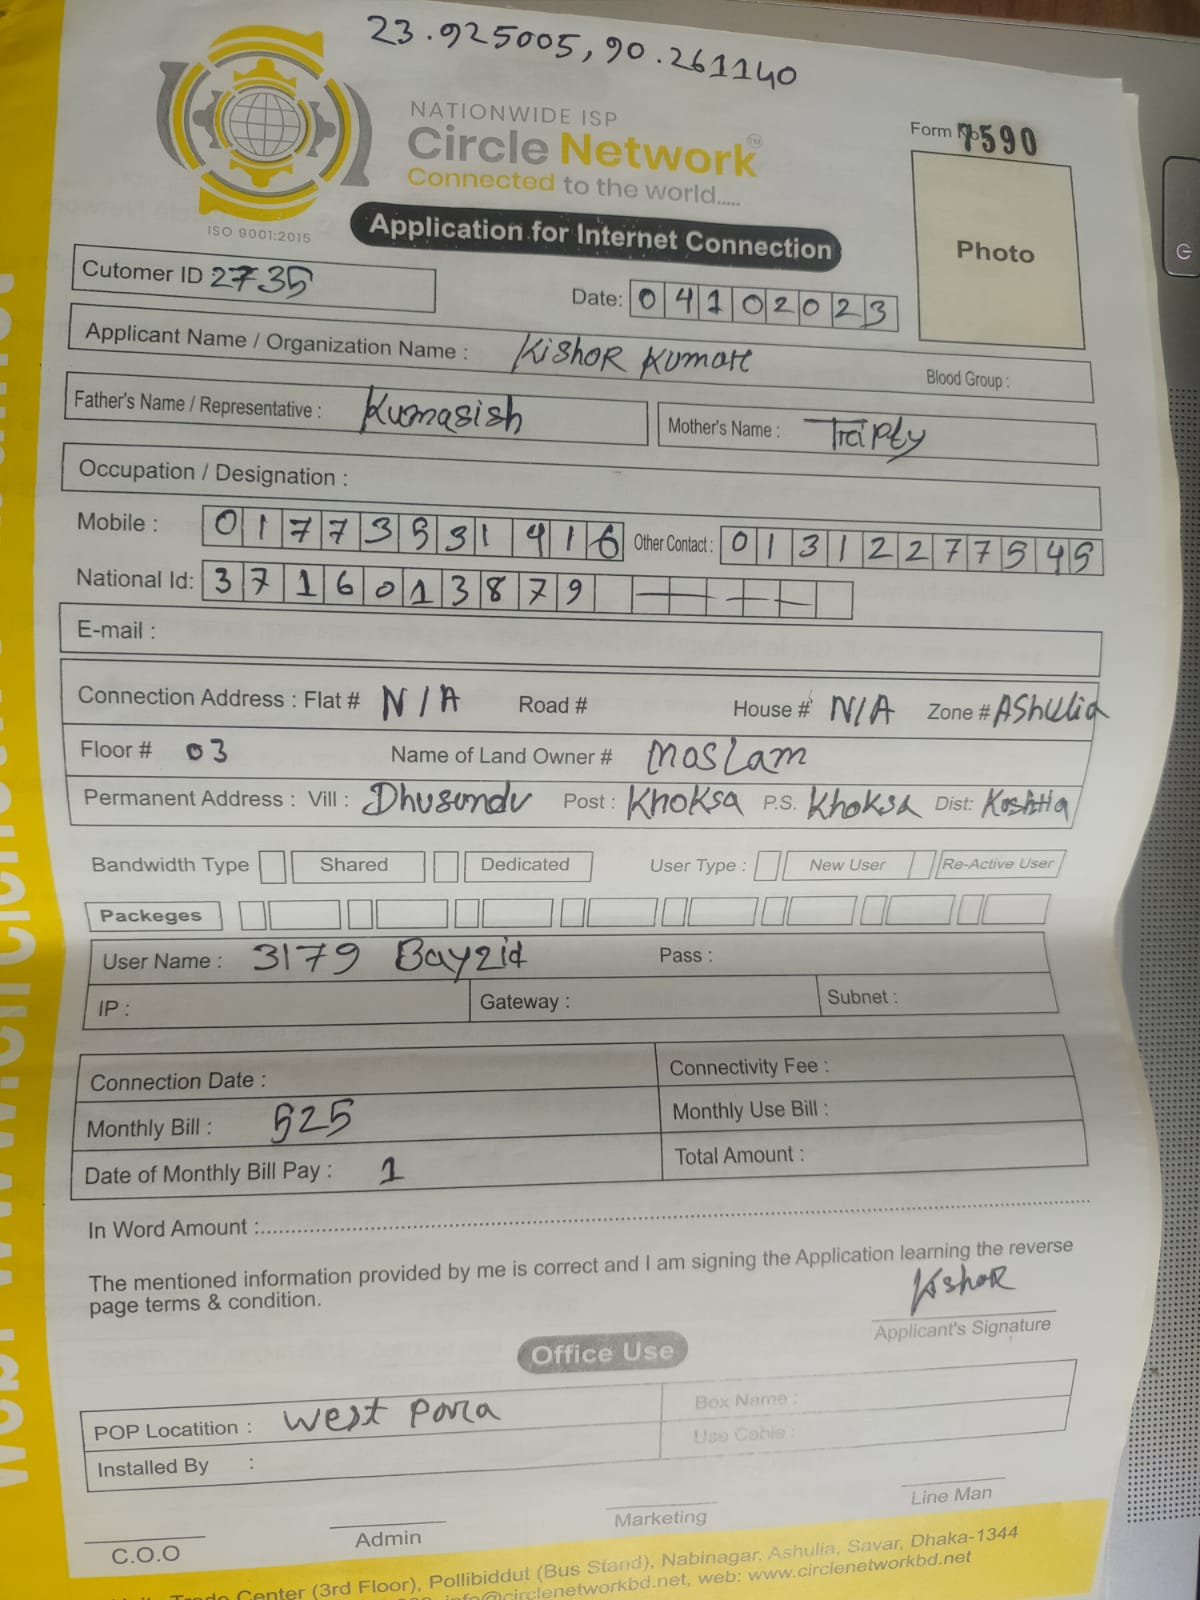 23.925005, 90.261140
NATIONWIDE ISP
Circle Network TM
Connected to the world.....
ISO 9001:2015
Form No 7590
Application for Internet Connection
Photo
Cutomer ID 2735
Date: 04102023
Applicant Name / Organization Name : Kishor Kumar Blood Group :
Father's Name / Representative : Kumasish Mother's Name : Tripty
Occupation / Designation :
Mobile : 01773531416 Other Contact : 01312277545
National Id: 3716013879
E-mail :
Connection Address : Flat # N/A Road # House # N/A Zone # AShulia
Floor # 03 Name of Land Owner # Moslam
Permanent Address : Vill : Dhusundu Post : Khoksa P.S. Khoksa Dist: Koshtia
Bandwidth Type Shared Dedicated User Type : New User Re-Active User
Packeges
User Name : 3179 Bayzid Pass :
IP : Gateway : Subnet :
Connection Date : Connectivity Fee :
Monthly Bill : 525 Monthly Use Bill :
Date of Monthly Bill Pay : 1 Total Amount :
In Word Amount :
The mentioned information provided by me is correct and I am signing the Application learning the reverse
page terms & condition.
Kishor
Applicant's Signature
Office Use
POP Locatition : West Para Box Name :
Installed By : Use Cable :
C.O.O Admin Marketing Line Man
Trade Center (3rd Floor), Pollibiddut (Bus Stand), Nabinagar, Ashulia, Savar, Dhaka-1344
info@circlenetworkbd.net, web: www.circlenetworkbd.net